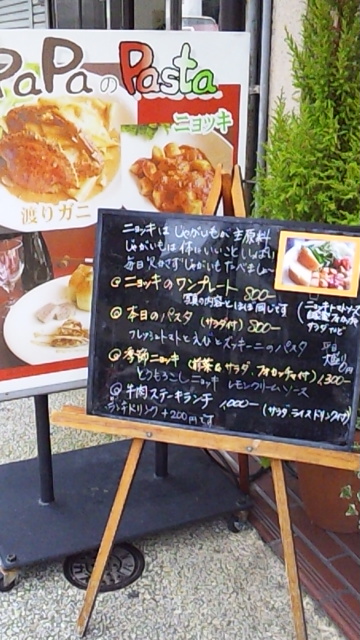 PaPaのPasta
ニョッキ
渡りガニ
ニョッキは じゃがいもが主原料
じゃがいもは体にいいこといっぱい
毎日欠かさずじゃがいもたべましょー
◎ニョッキのワンプレート 800-
写真の内容とほぼ同じです
(ニョッキトマトソース
サラダなど
◎本日のパスタ (サラダ付) 800-
フレッシュトマトとえびとズッキーニのパスタ
◎季節ニョッキ (前菜&サラダ、フォカッチャ付) 1,300-
とうもろこしニョッキ レモンクリームソース
◎牛肉ステーキランチ 1,000- (サラダ ライス ドリンク付)
ランチドリンク +200円です